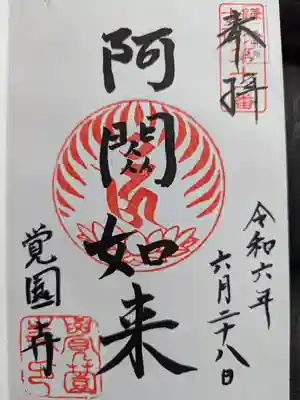 奉拝
令和六年
六月二十八日
阿閦如来
覚園寺